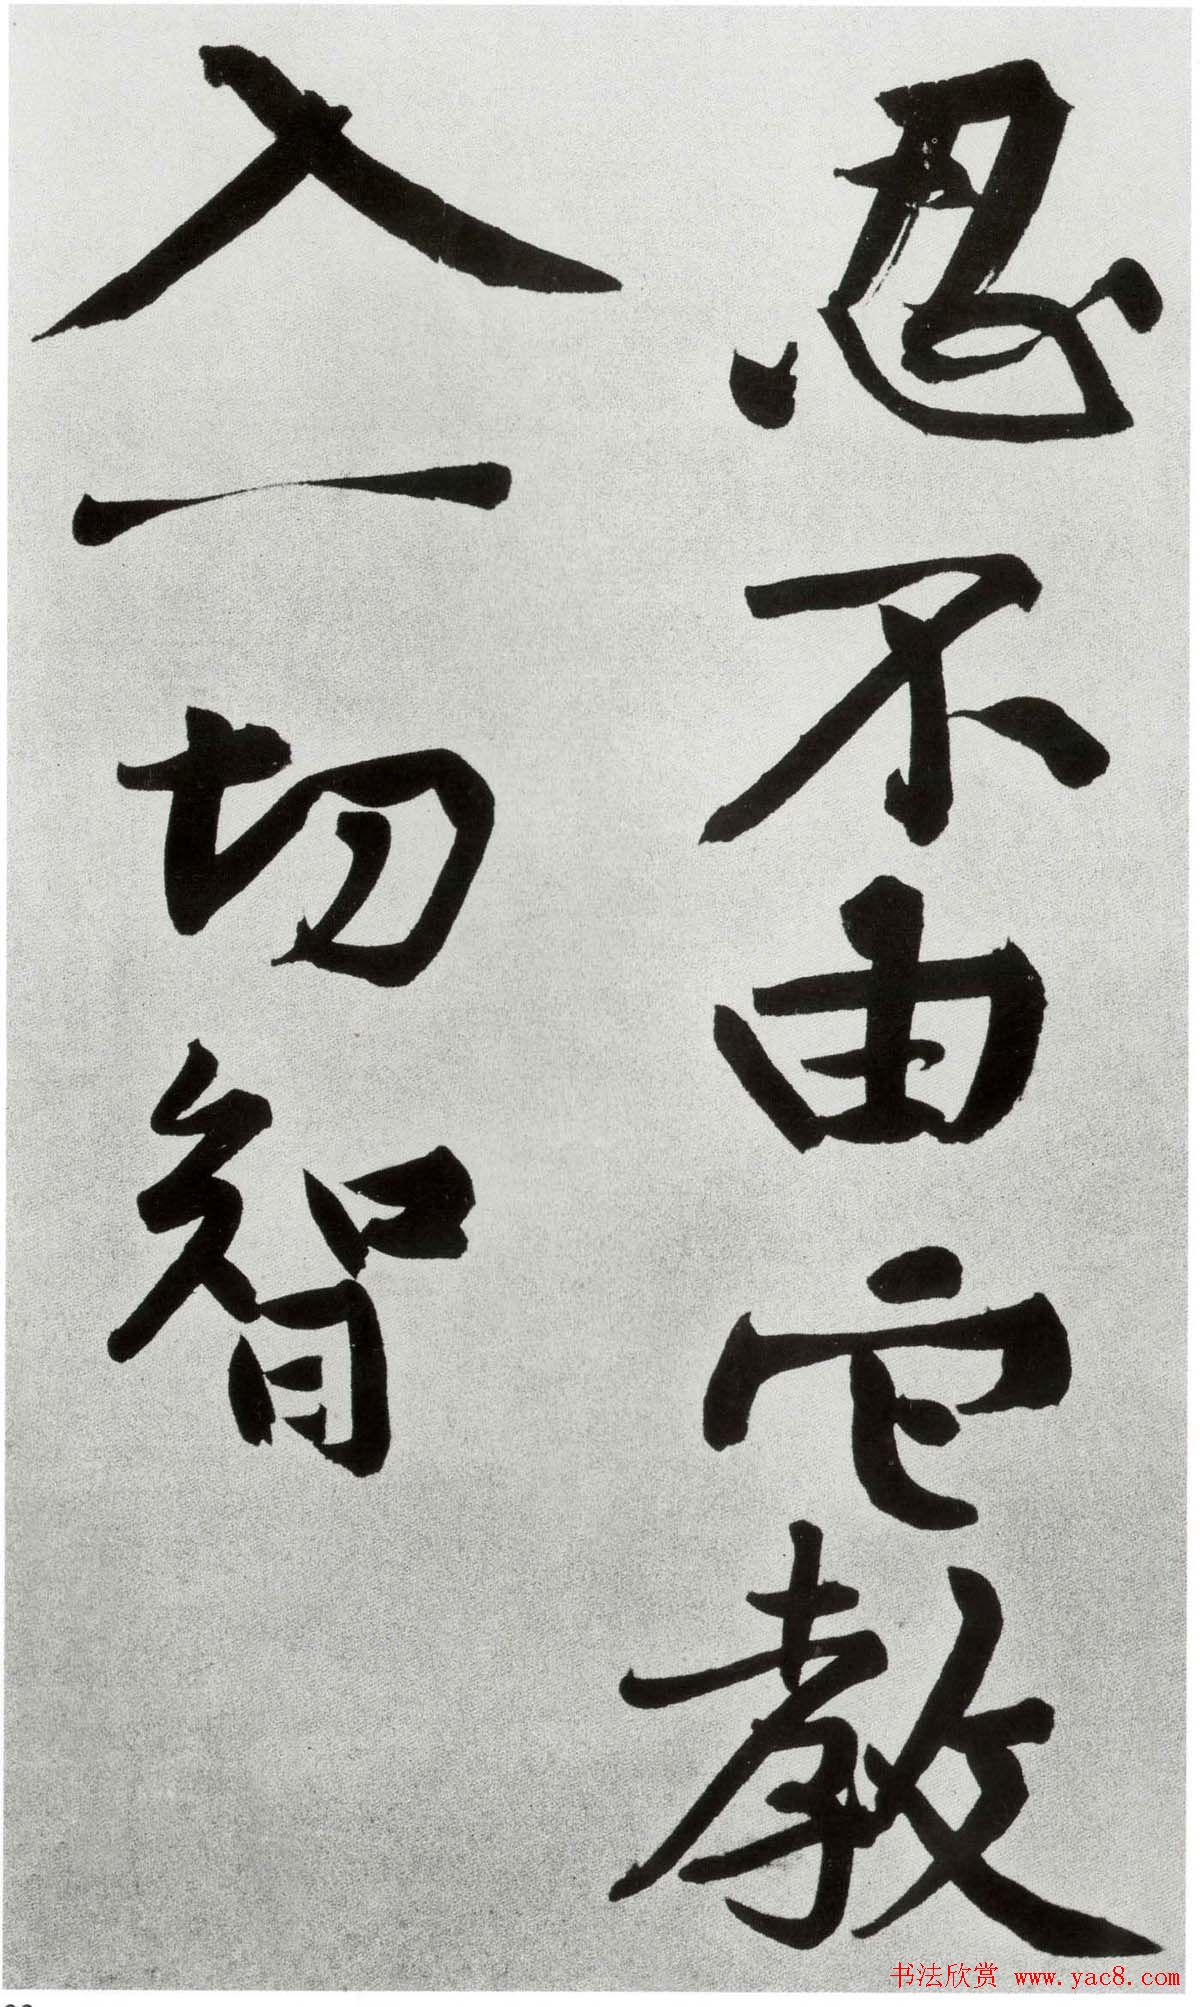 忍不由它教
入一切智
书法欣赏 www.yac8.com